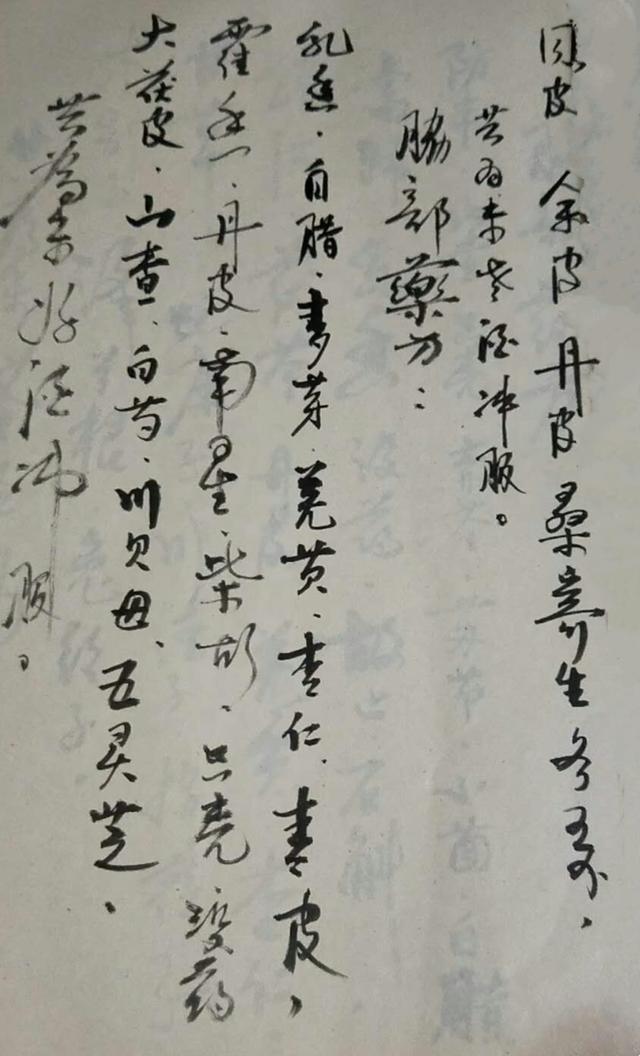 皮 余皮 丹皮 桑寄生 各五分,
共为末老酒冲服。
脇部藥方:
乳香.自腊.麦芽.羌黄.杏仁.青皮,
霍香.丹皮.南星.柴胡.只壳 没药
大茯皮.山查.白芍.川贝母.五灵芝.
共為末 好酒冲服.